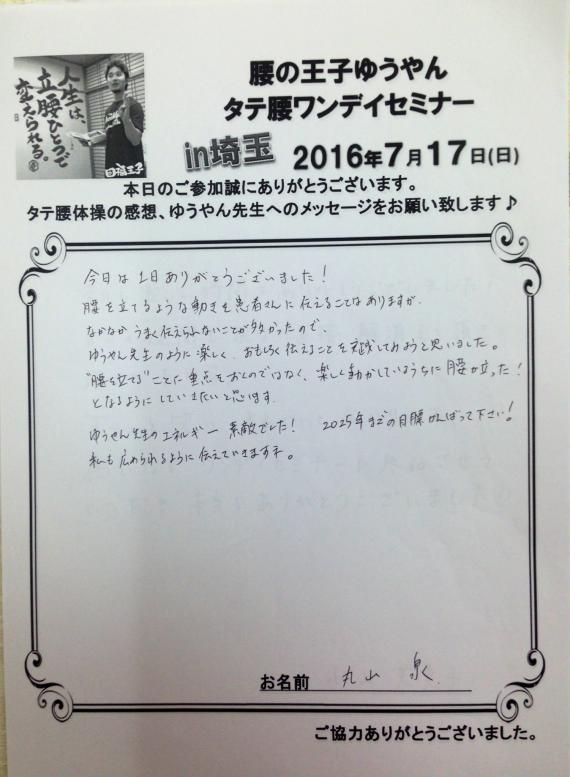 人生は、
立腰ひとつで
変えられる。
目福王子
腰の王子ゆうやん
タテ腰ワンデイセミナー
in埼玉 2016年7月17日(日)
本日のご参加誠にありがとうございます。
タテ腰体操の感想、ゆうやん先生へのメッセージをお願い致します♪
今日は1日ありがとうございました!
腰を立てるような動きを患者さんに伝えることはありますが、
なかなかうまく伝えられないことが多かったので、
ゆうやん先生のように楽しく、おもしろく伝えることを実践してみようと思いました。
"腰を立てる"ことに重点をおくのではなく、楽しく動かしているうちに腰が立った!
となるようにしていきたいと思います。
ゆうやん先生のエネルギー素敵でした! 2025年までの目腰がんばって下さい!
私も広められるように伝えていきます。
お名前 丸山 泉
ご協力ありがとうございました。